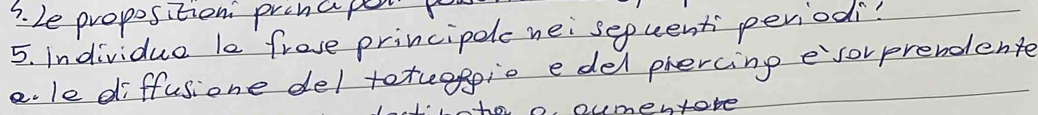 Le proposizioni
5. Individua la frase principale nei seguenti periodi:
a. la diffusione del tatuaggio e del piercing è sorprendente
a aumentare